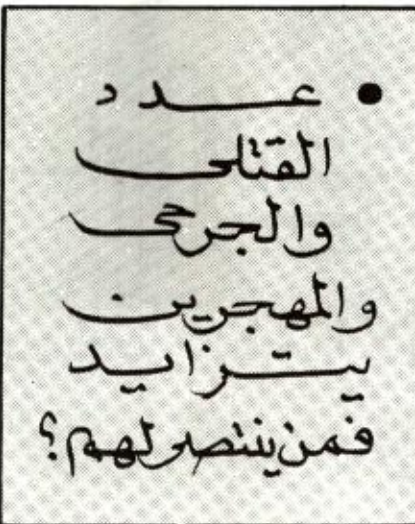 • عدد
القتلى
والجرحى
والمهجرين
يتزايد
فمن ينتصر لهم؟